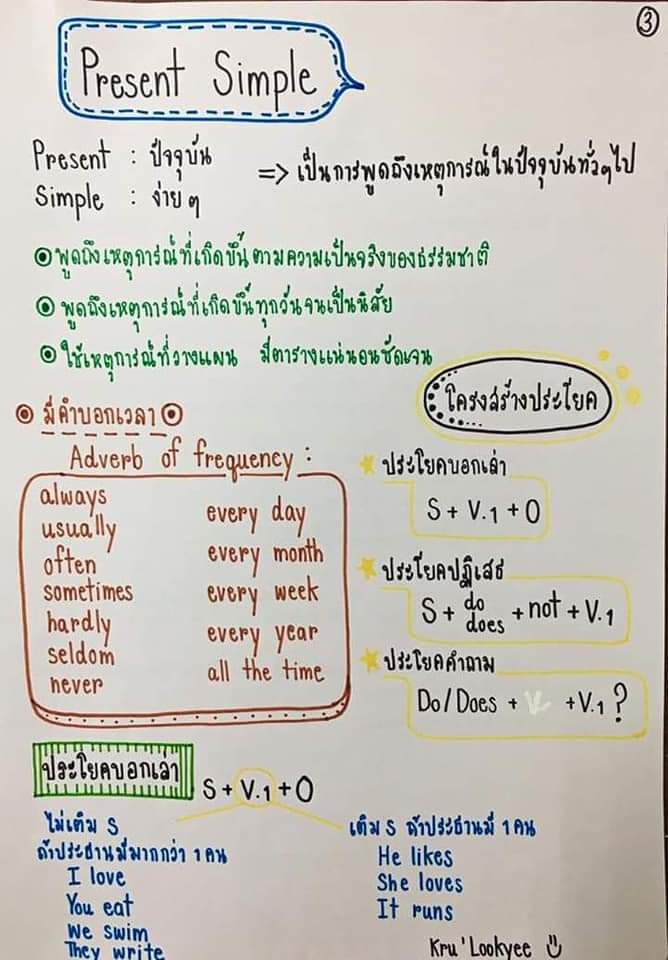 3
Present Simple
Present : ปัจจุบัน
Simple : ง่ายๆ
=> เป็นการพูดถึงเหตุการณ์ในปัจจุบันทั่วๆไป
พูดถึงเหตุการณ์ที่เกิดขึ้นตามความเป็นจริงของธรรมชาติ
พูดถึงเหตุการณ์ที่เกิดขึ้นทุกวันจนเป็นนิสัย
ใช้เหตุการณ์ที่วางแผน มีตารางแน่นอนชัดเจน
มีคำบอกเวลา
Adverb of frequency :
always
usually
often
sometimes
hardly
seldom
never
every day
every month
every week
every year
all the time
โครงสร้างประโยค
ประโยคบอกเล่า
S + V.1 + O
ประโยคปฏิเสธ
S + do does + not + V.1
ประโยคคำถาม
Do/Does + + V.1 ?
ประโยคบอกเล่า S + V.1 + O
ไม่เติม S
ถ้าประธานมีมากกว่า 1 คน
I love
You eat
We swim
They write
เติม S ถ้าประธานมี 1 คน
He likes
She loves
It runs
Kru'Lookyee